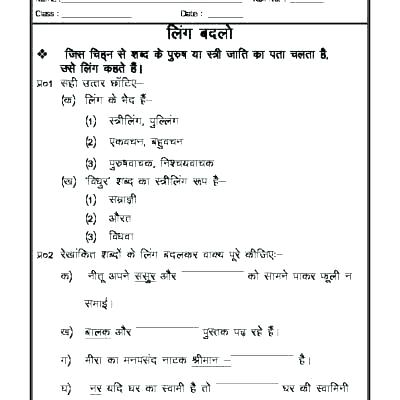 Class : Date :
लिंग बदलो
❖ जिस चिह्न से शब्द के पुरुष या स्त्री जाति का पता चलता है,
उसे लिंग कहते हैं।
प्र०1 सही उत्तर छाँटिए–
(क) लिंग के भेद हैं–
(1) स्त्रीलिंग, पुल्लिंग
(2) एकवचन, बहुवचन
(3) पुरुषवाचक, निश्चयवाचक
(ख) 'विधुर' शब्द का स्त्रीलिंग रूप है–
(1) सम्राज्ञी
(2) औरत
(3) विधवा
प्र०2 रेखांकित शब्दों के लिंग बदलकर वाक्य पूरे कीजिए:–
क) नीतू अपने ससुर और __________ को सामने पाकर फूली न
समाई।
ख) बालक और __________ पुस्तक पढ़ रहे हैं।
ग) मीरा का मनपसंद नाटक श्रीमान –__________ है।
घ) नर यदि घर का स्वामी है तो __________ घर की स्वामिनी